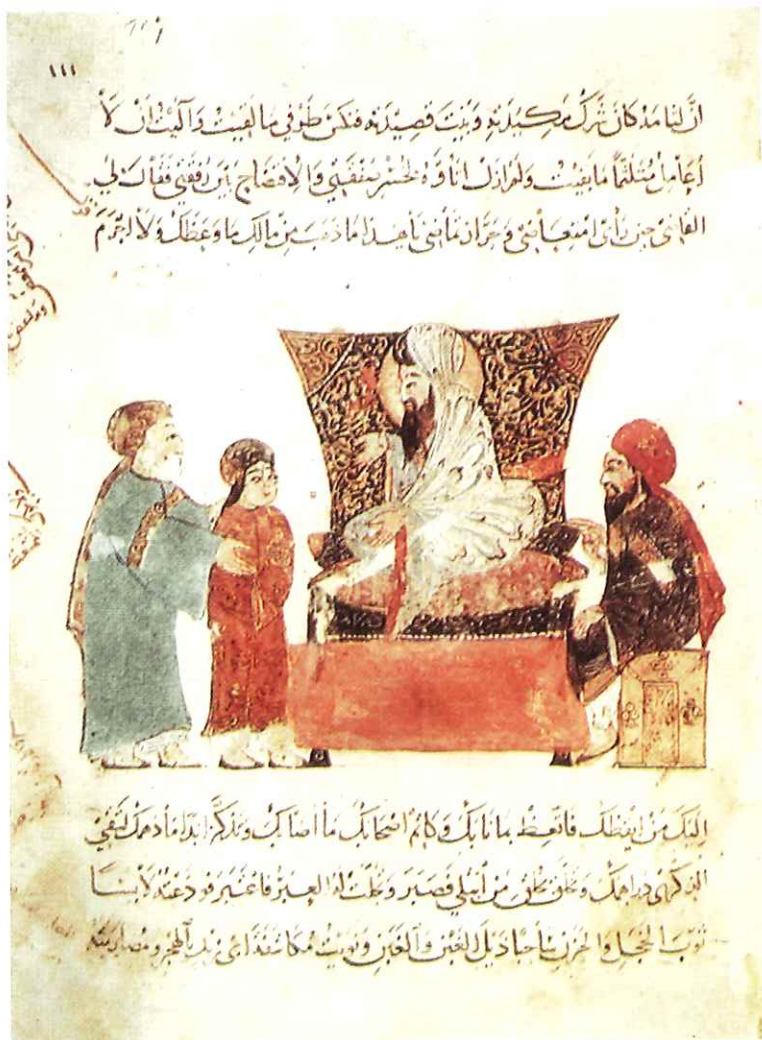 ١١١
ان لثامه كان شرك مكيدته وبيت قصيدته فنكس طرفي ما لقيت وآليت ان لا
اعامل متلثما ما بقيت ولم ازل اتاوه لخسر صفقتي والافتضاح بين رفقتي فقال لي
القاضي حين رأى امتعاضي وحر ارتماضي يا هذا ما ذهب من مالك ما وعظك ولا اجرم
اليك من ايقظك فاتعظ بما نابك وكاتم اصحابك ما اصابك وتذكر ابدا ما دهمك لتقي
الذكرى دراهمك وتخلق بخلق من ابتلي فصبر وتجلت له العبر فاعتبر فودعته لابسا
ثوب الخجل والحزن ساحبا ذيل الغبن والغبن ونويت مكاشفة ابي زيد بالهجر ومصارمته